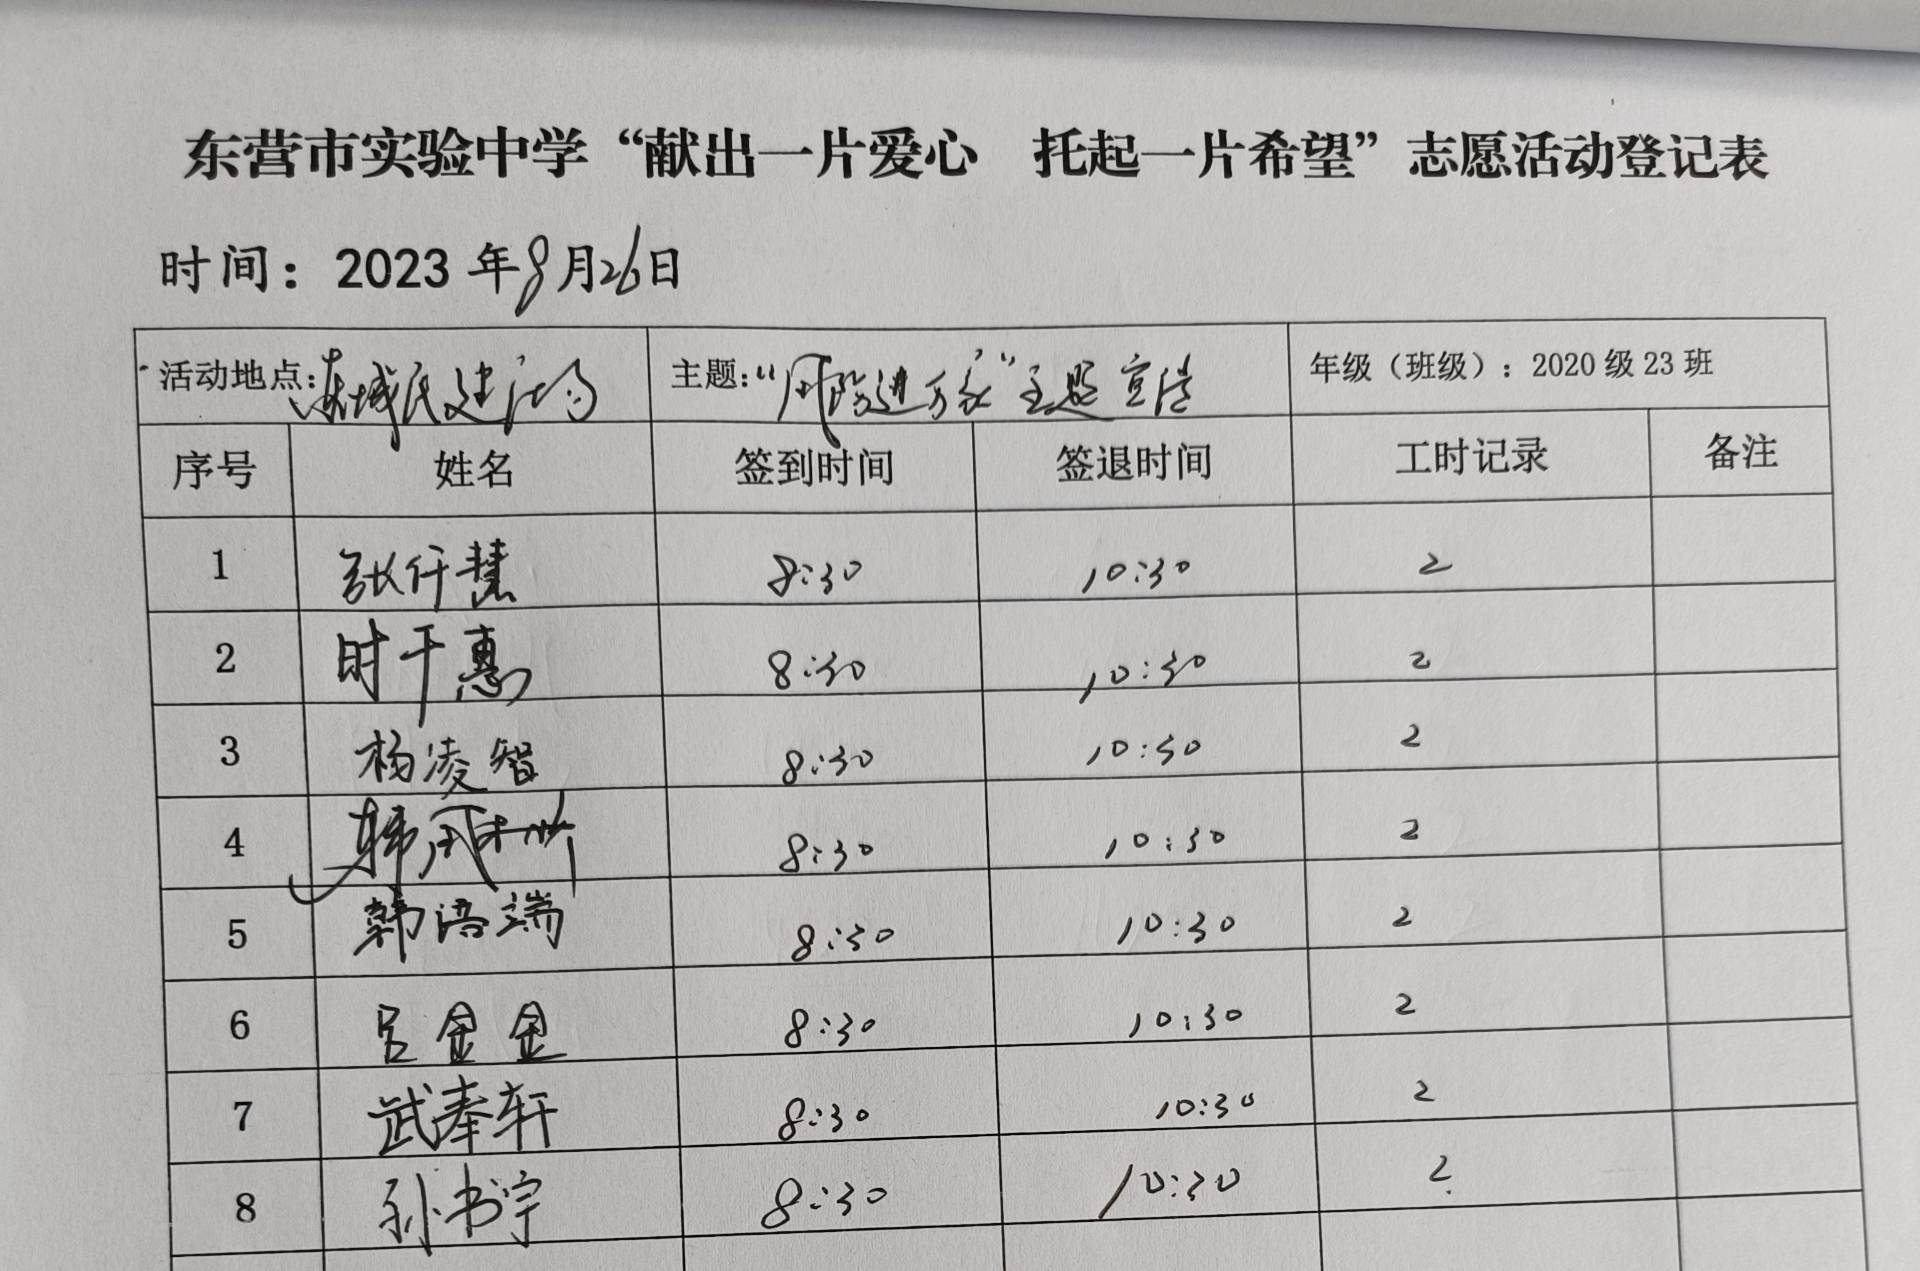 东营市实验中学“献出一片爱心 托起一片希望”志愿活动登记表
时间：2023年8月26日
活动地点：东城民建广场 主题：“风险进万家”主题宣传 年级（班级）：2020级23班
序号 姓名 签到时间 签退时间 工时记录 备注
1 张仟慧 8:30 10:30 2
2 时千惠 8:30 10:30 2
3 杨凌智 8:30 10:30 2
4 韩 8:30 10:30 2
5 韩语端 8:30 10:30 2
6 吕金金 8:30 10:30 2
7 武奉轩 8:30 10:30 2
8 孙书宇 8:30 10:30 2